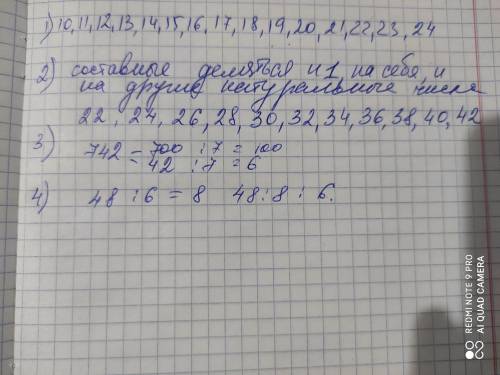 1) 10,11,12,13,14,15,16,17,18,19,20,21,22,23,24
2) составные деляться н 1, на себя, и
на другие натуральные числа
22, 24, 26, 28, 30, 32, 34, 36, 38, 40, 42
3) 742 = 700 : 7 = 100
= 42 : 7 = 6
4) 48 : 6 = 8 48 : 8 : 6.
REDMI NOTE 9 PRO
AI QUAD CAMERA